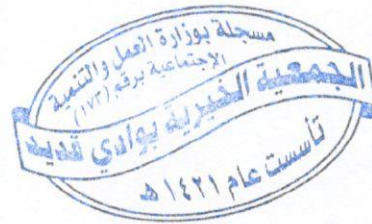 مسجلة بوزارة العمل والتنمية
الإجتماعية برقم (١٧٣)
الجمعية الخيرية بوادي قديد
تأسست عام ١٤٢١هـ